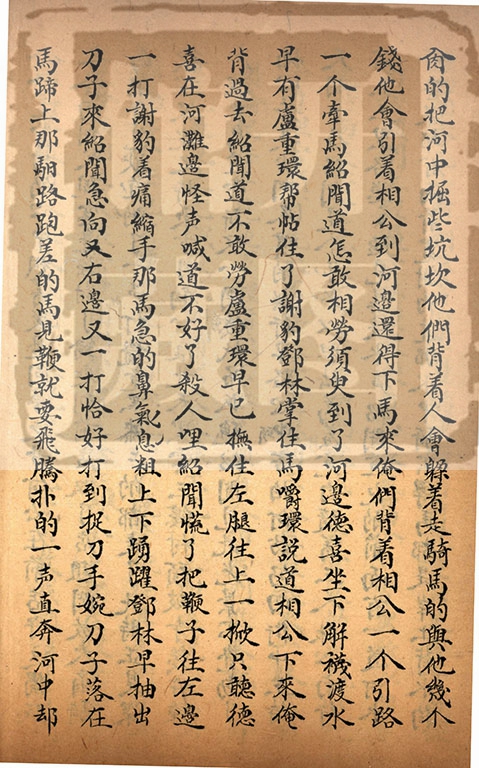 肉的把河中掘些坑坎他們背着人會躱着走騎馬的與他幾个
錢他會引着相公到河邊還得下馬來俺們背着相公一个引路
一个牽馬紹聞道怎敢相勞須臾到了河邊德喜坐下解襪渡水
早有盧重環帮帖住了謝豹鄧林掌住馬嚼環說道相公下來俺
背過去紹聞道不敢勞盧重環早已撫住左腿往上一掀只聽德
喜在河灘邊怪声喊道不好了殺人哩紹聞慌了把鞭子往左邊
一打謝豹着痛縮手那馬急的鼻氣息粗上下踴躍鄧林早抽出
刀子來紹聞急向又右邊又一打恰好打到捉刀手婉刀子落在
馬蹄上那駟路跑差的馬見鞭就要飛騰扑的一声直奔河中却